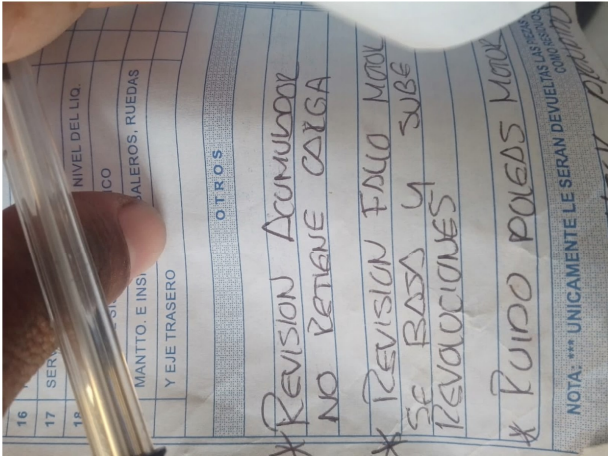 16
17 SER
18 NIVEL DEL LIQ.
CO
ALEROS, RUEDAS
MANTTO. E INS
Y EJE TRASERO
OTROS
* REVISION ACUMULADOR
NO RETIENE CARGA
* REVISION FALLO MOTOR
SE BAJA Y SUBE
REVOLUCIONES
* RUIDO POLEAS MOTOR
NOTA: *** UNICAMENTE LE SERAN DEVUELTAS LAS PIEZAS
COMO RESIDUOS